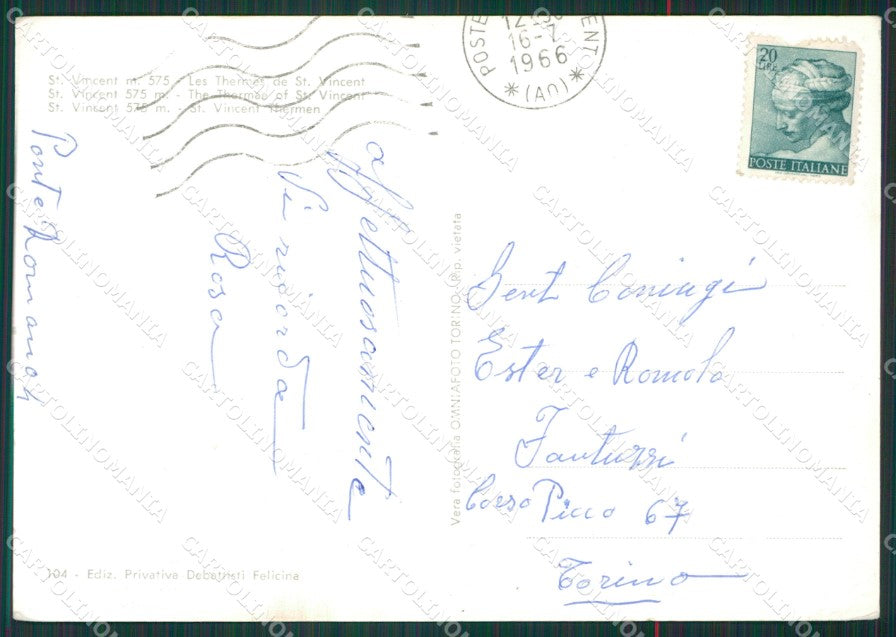 St. Vincent m. 575 - Les Thermes de St. Vincent
St. Vincent 575 m. - The Thermes of St. Vincent
St. Vincent 575 m. - St. Vincent Thermen
POSTE
16-7
1966
(AO)
20
LIRE
POSTE ITALIANE
affettuosamente
Vi ricorda
Rosa
Vera fotografia OMNIAFOTO TORINO - Rip. vietata
Gent Coniugi
Ester e Romolo
Fantuzzi
Corso Picco 67
Torino
104 - Ediz. Privativa Debattisti Felicina
CARTOLINOMANIA